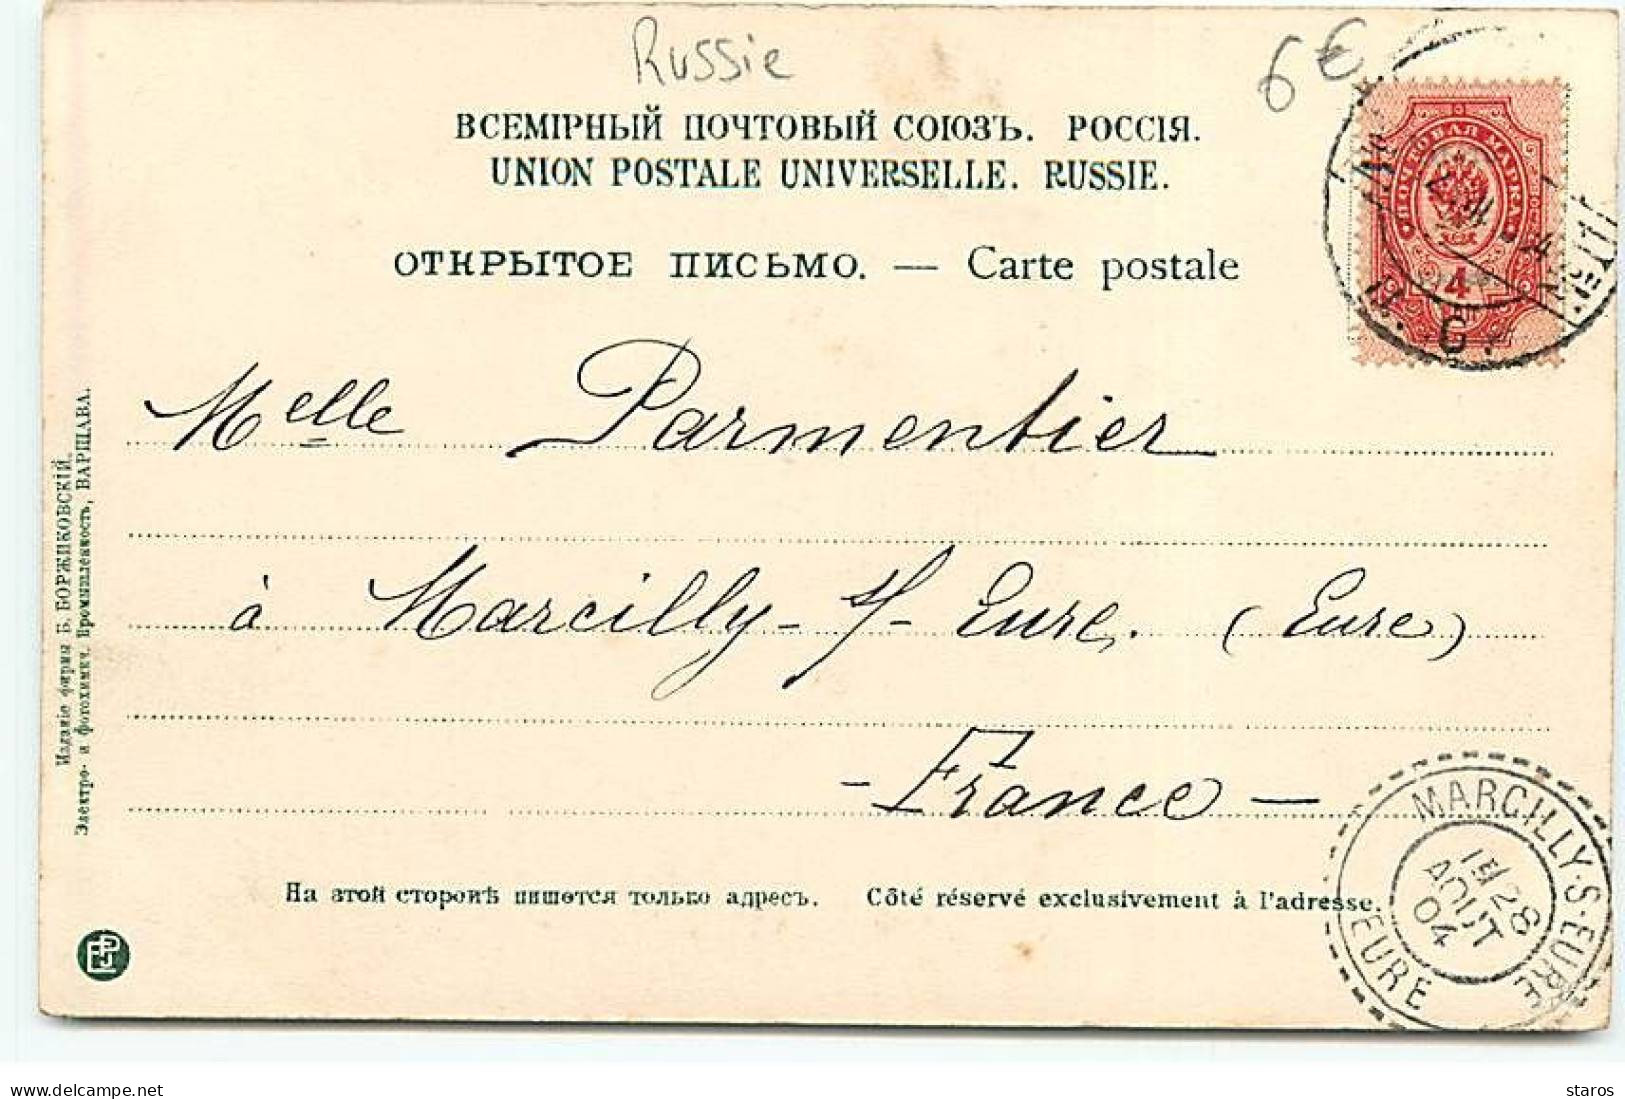 Russie
6€
ВСЕМІРНЫЙ ПОЧТОВЫЙ СОЮЗЪ. РОССІЯ.
UNION POSTALE UNIVERSELLE. RUSSIE.
ОТКРЫТОЕ ПИСЬМО. — Carte postale
ПОЧТОВАЯ МАРКА
4
Melle Parmentier
à Marcilly - s/- Eure. (Eure)
- France -
На этой сторонѣ пишется только адресъ. Côté réservé exclusivement à l'adresse.
Изданіе фирмы Б. БОРЖИКОВСКІЙ.
Электро- и фотохимич. Промышленность, ВАРШАВА.
MARCILLY-S-EURE
28
AOUT
04
EURE
delcampe.net
staros